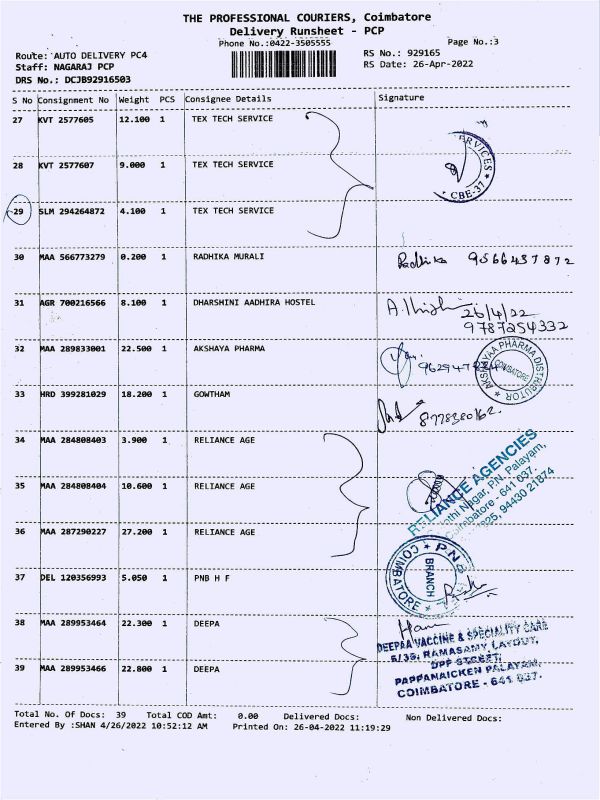 THE PROFESSIONAL COURIERS, Coimbatore
Delivery Runsheet - PCP
Phone No.:0422-3505555
Page No.:3
Route: AUTO DELIVERY PC4
RS No.: 929165
Staff: NAGARAJ PCP
RS Date: 26-Apr-2022
DRS No.: DCJB92916503
S No Consignment No Weight PCS Consignee Details Signature
27 KVT 2577605 12.100 1 TEX TECH SERVICE
28 KVT 2577607 9.000 1 TEX TECH SERVICE
RVICES * CBE-37 *
29 SLM 294264872 4.100 1 TEX TECH SERVICE
30 MAA 566773279 0.200 1 RADHIKA MURALI Radhika 9566437872
31 AGR 700216566 8.100 1 DHARSHINI AADHIRA HOSTEL
26/4/22
9787254332
32 MAA 289833001 22.500 1 AKSHAYA PHARMA
AKSHAYAA PHARMA DISTRIBUTOR * COIMBATORE *
33 HRD 399281029 18.200 1 GOWTHAM
8778380162.
34 MAA 284808403 3.900 1 RELIANCE AGE
RELIANCE AGENCIES
Nagar, P.N. Palayam,
Coimbatore - 641 037.
94430 21874
35 MAA 284808404 10.600 1 RELIANCE AGE
36 MAA 287290227 27.200 1 RELIANCE AGE
37 DEL 120356993 5.050 1 PNB H F
COIMBATORE * P.N.B
BRANCH
38 MAA 289953464 22.300 1 DEEPA
DEEPAA VACCINE & SPECIALITY CARE
5/35, RAMASAMY LAYOUT,
OPP STREET,
PAPPANAICKEN PALAYAM,
COIMBATORE - 641 037.
39 MAA 289953466 22.800 1 DEEPA
Total No. Of Docs: 39 Total COD Amt: 0.00 Delivered Docs: Non Delivered Docs:
Entered By :SHAN 4/26/2022 10:52:12 AM Printed On: 26-04-2022 11:19:29